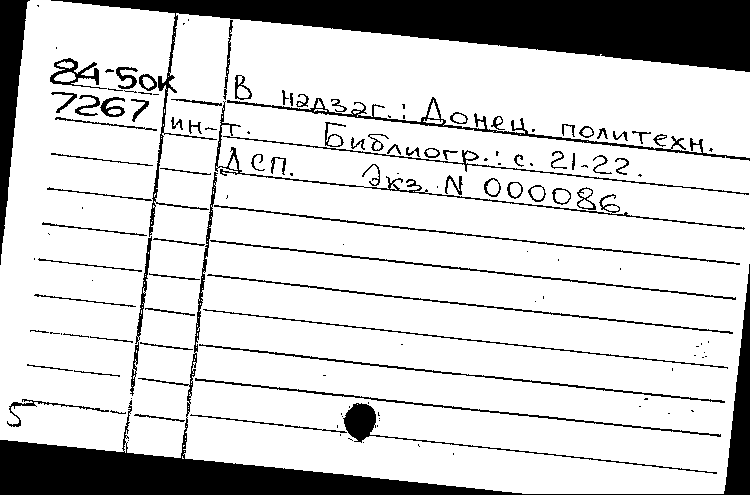 84-5ок В надзаг.: Донец. политехн.
7267 ин-т. Библиогр.: с. 21-22.
ДСП. Экз. N 000086.
5